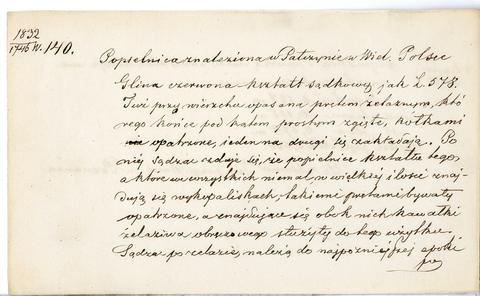 1832
1746 W. 140.
Popielnica znaleziona w Patrzynie w Wiel. Polsce
Glina czerwona kształt sądkowy, jak L. 578.
Tuż przy wierzchu opasana prętem żelaznym, któ
rego końce pod kątem prostym zgięte, kółkami
opatrzone, ieden na drugi się zakładają. Po
niej sądząc zdaje się, że popielnice kształtu tego,
a które we wszystkich niemal w wielkiej ilości znaj-
dują się wykopaliskach, takiemi prętami bywały
opatrzone, a znajdujące się obok nich kawałki
żelaziwa obręczowego służyły do tego użytku.
Sądząc po żelazie, należą do najpóźniejszej epoki